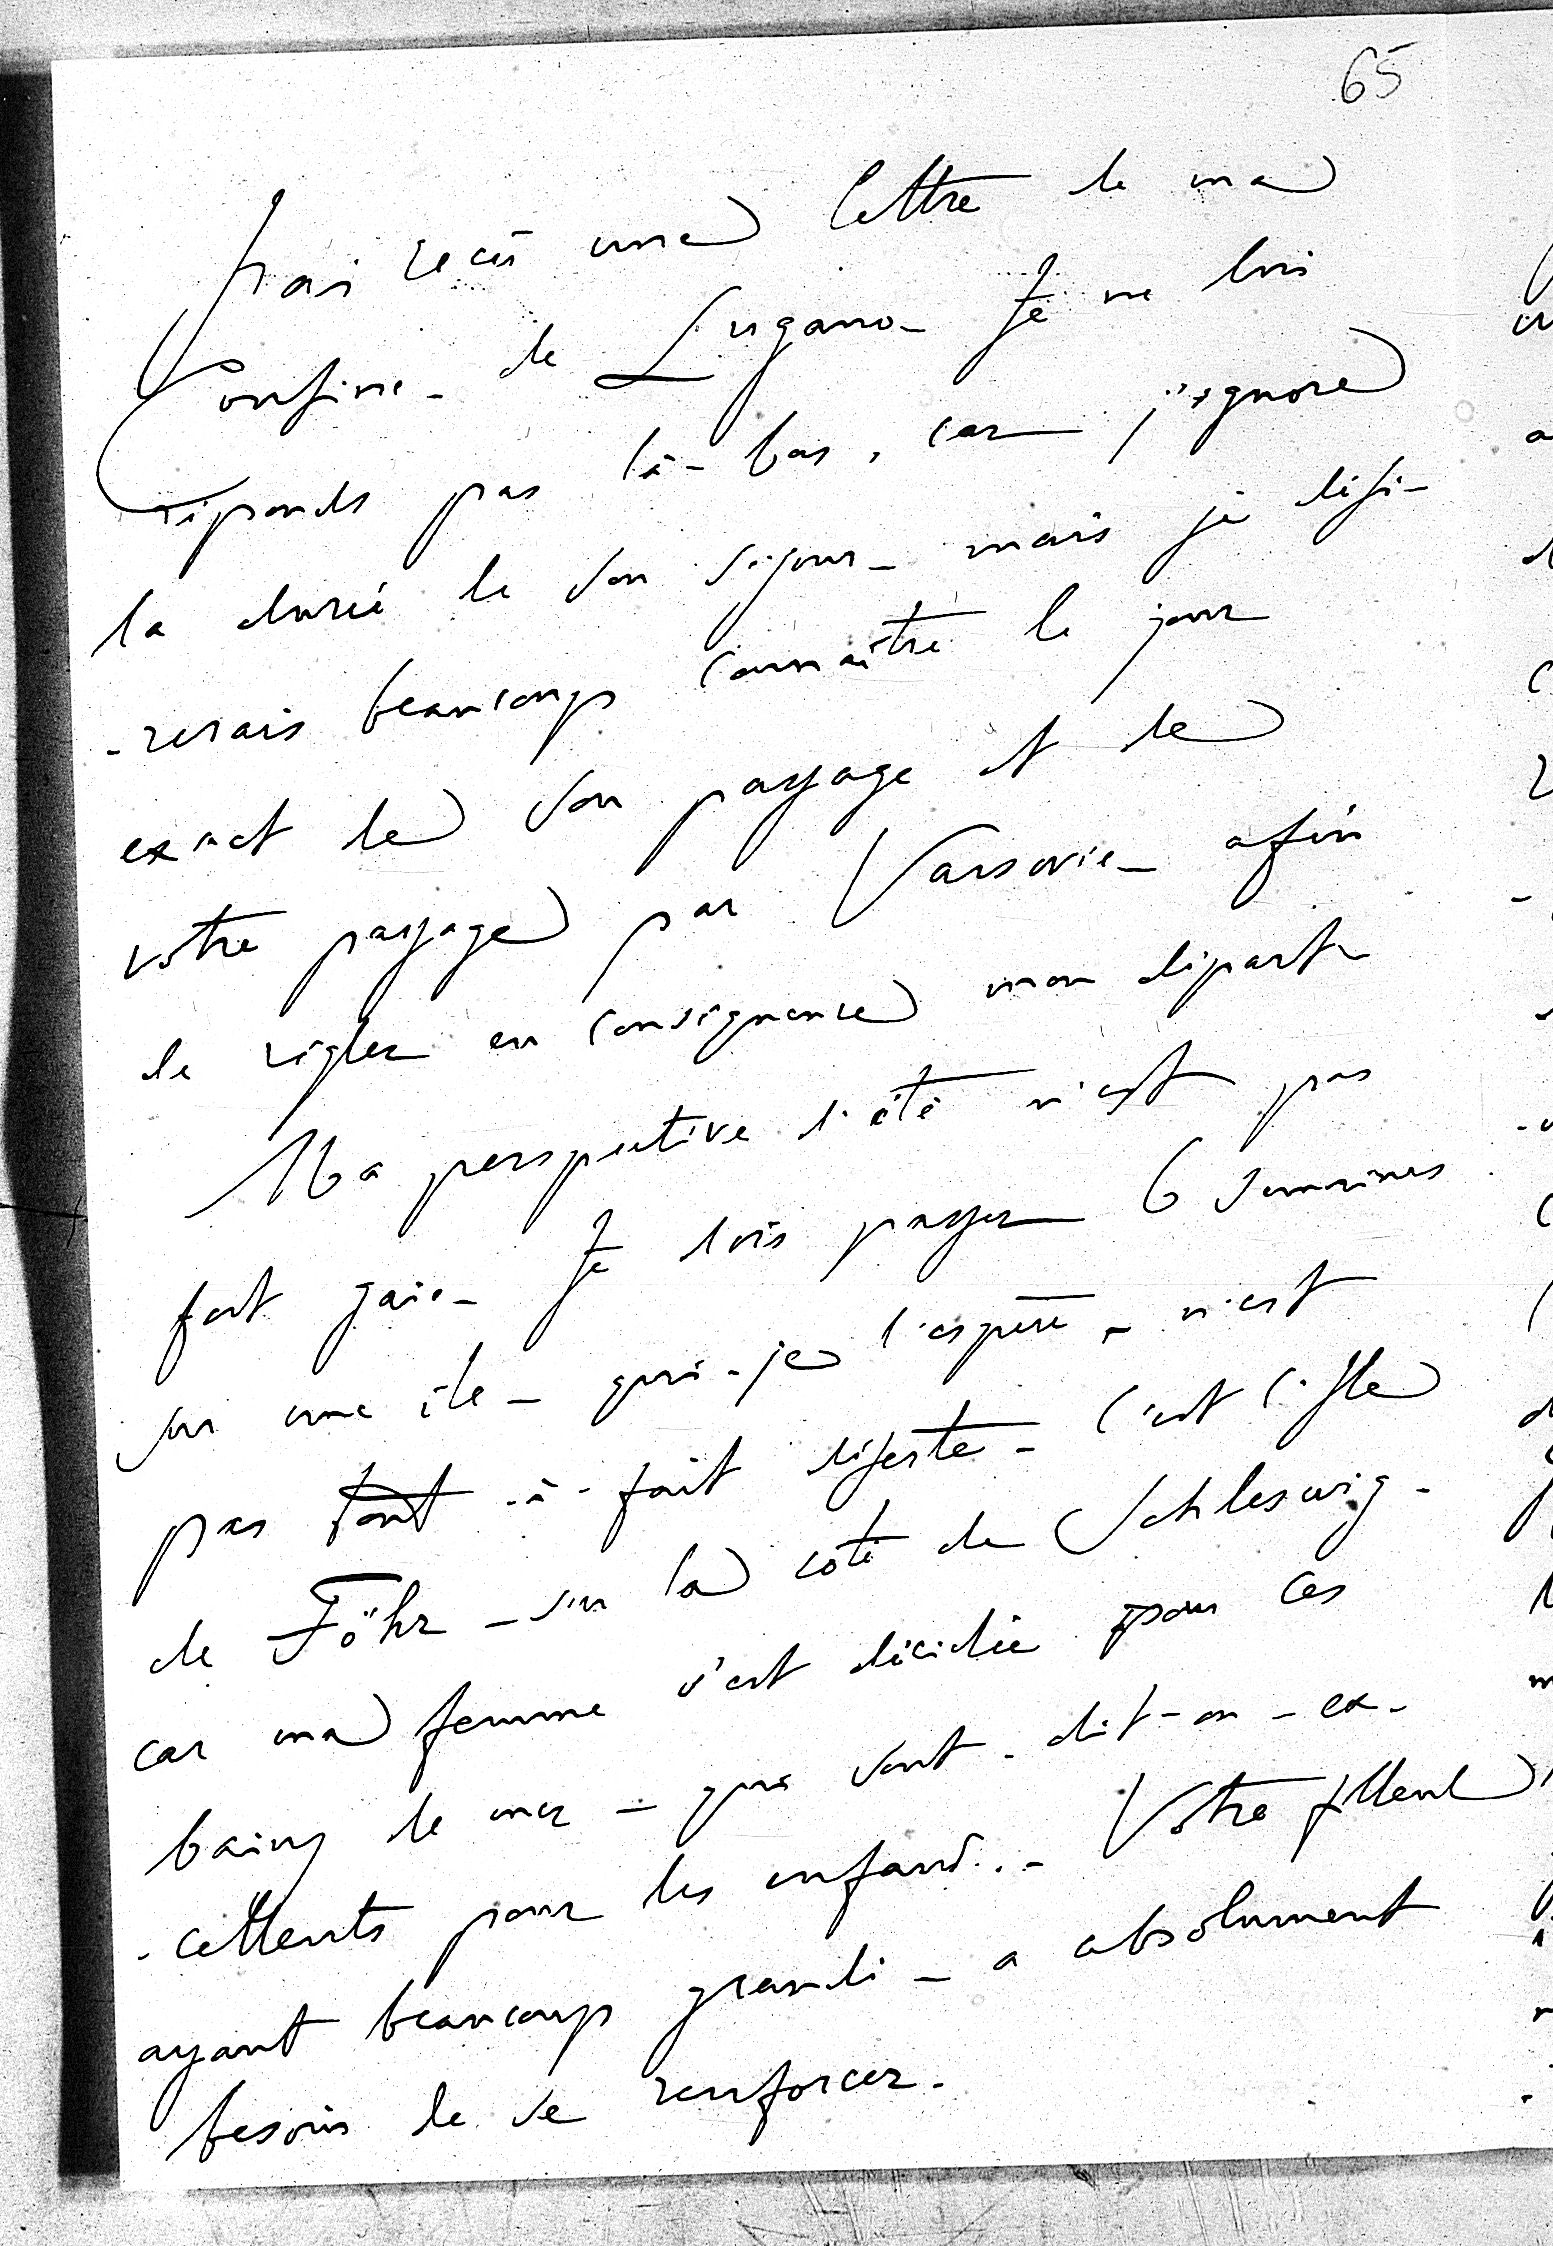 65
J'ai reçu une lettre de ma
Cousine - de Lugano - Je ne lui
réponds pas là-bas, car j'ignore
la durée de son séjour - mais je dési-
-rerais beaucoup connaître le jour
exact de son passage et de
votre passage par Varsovie - afin
de régler en conséquence mon départ
Ma perspective d'été n'est pas
fort gaie - Je dois passer 6 semaines
sur une île - qui - je l'espère - n'est
pas tout-à-fait déserte - C'est l'isle
de Föhr - sur la côte de Schleswig -
car ma femme s'est décidée pour ces
bains de mer - qui sont - dit-on - ex-
-cellents pour les enfants.. - Votre filleul
ayant beaucoup grandi - a absolument
besoin de se renforcer.